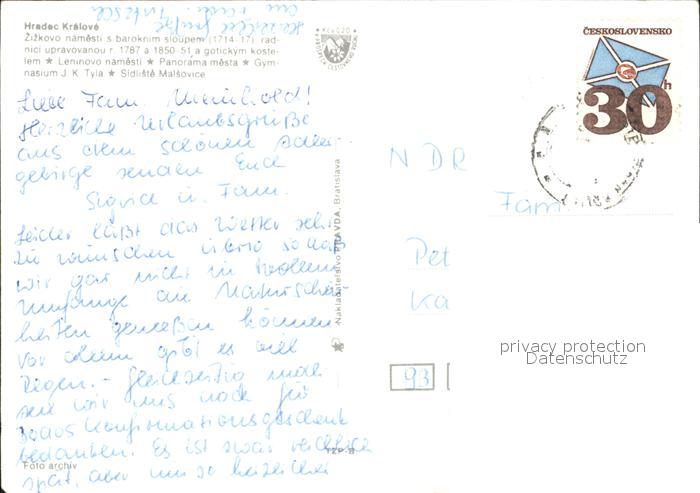 Hradec Králové
Žižkovo náměstí s baroknim sloupem (1714-17) rad-
nicí upravovanou r. 1787 a 1850-51 a gotickým koste-
lem ★ Leninovo náměstí ★ Panorama města ★ Gym-
nasium J. K. Tyla ★ Sídliště Malšovice
Liebe Fam. Meinhold!
Herzliche Urlaubsgrüße
aus dem schönen Adler-
gebirge senden Euch
Sigrid u. Fam.
Leider läßt das Wetter sehr
zu wünschen übrig sodaß
wir gar nicht in vollem
Umfange die Naturschön-
heiten genießen können.
Vor allem gibt es viel
Regen. - Gleichzeitig möch-
ten wir uns noch für
das Konfirmationsgeschenk
bedanken. Es ist zwar reichlich
spät, aber um so herzlicher
Foto archiv
YZP-B
Nakladatelstvo PRAVDA, Bratislava
Kčs 0,20
ČESKOSLOVENSKO
30h
NDR
Fam
Pet
Ka
93
privacy protection
Datenschutz